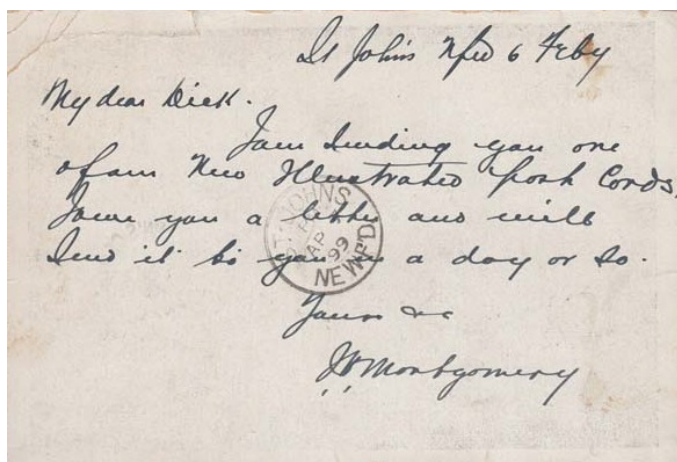 St Johns Nfld 6 Feby
My dear Dick.
I am sending you one
of our New Illustrated Post Cords.
I owe you a letter and will
send it to you in a day or so.
Yours &c
Montgomery
ST. JOHN'S
AP
99
NEWF'D